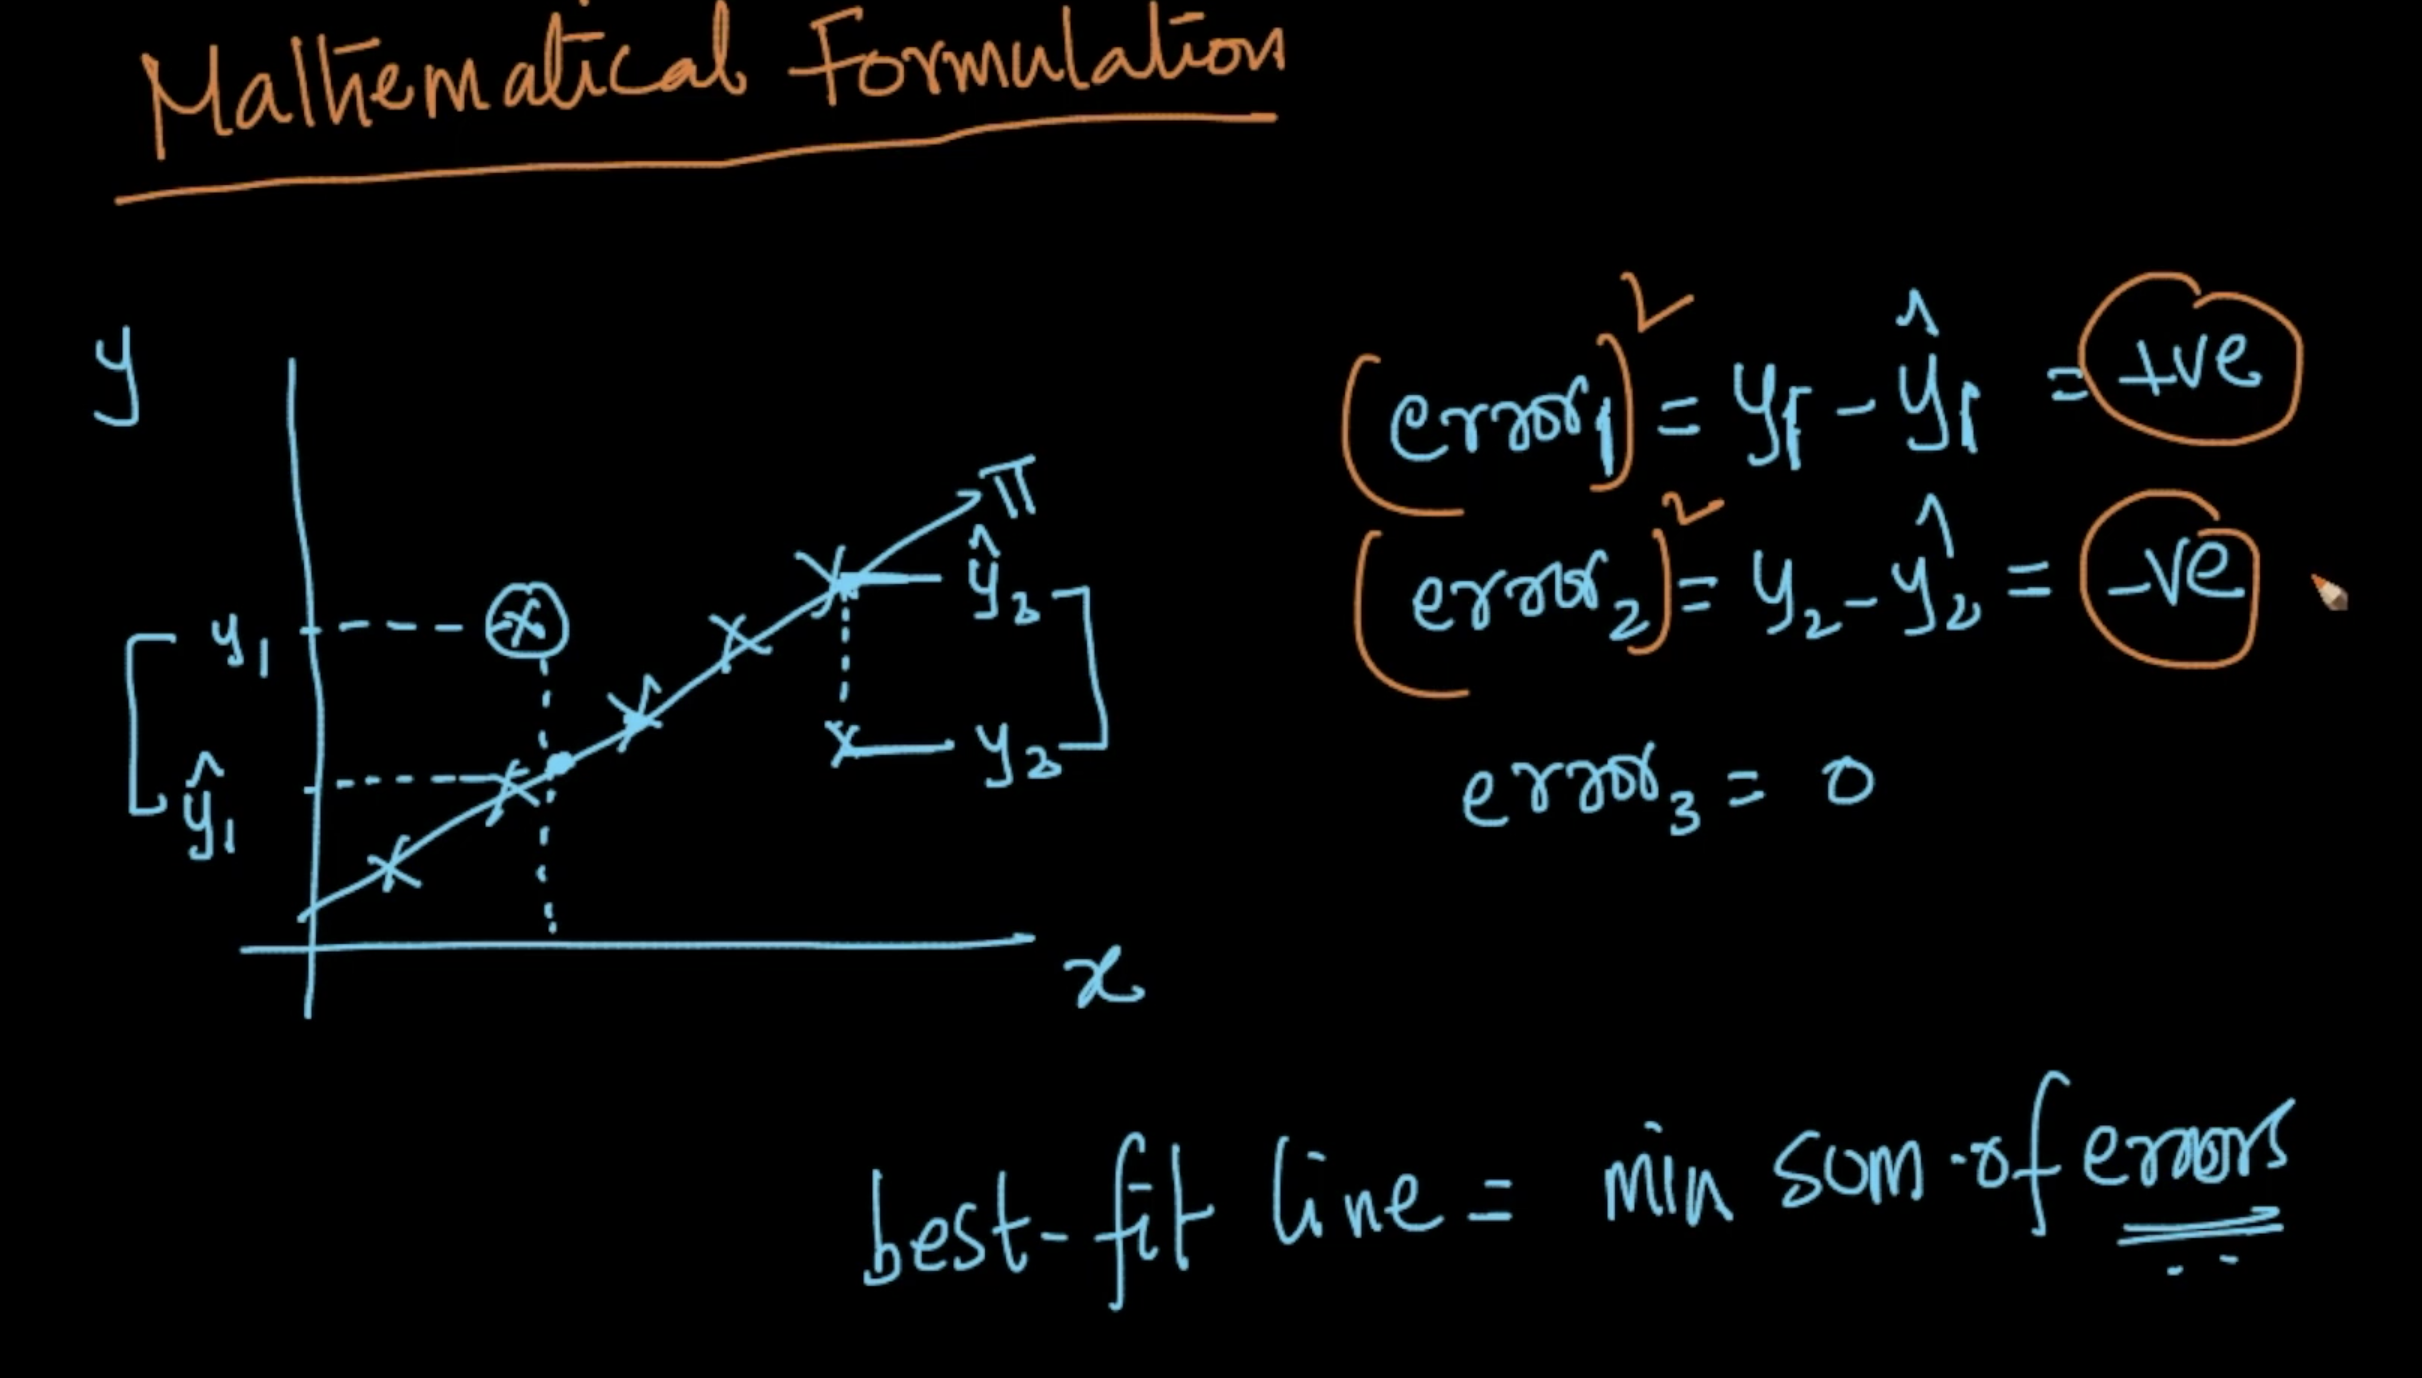 Mathematical Formulation
y
π
ŷ₂
y₁
y₂
ŷ₁
x
(error₁)² = y₁ - ŷ₁ = +ve
(error₂)² = y₂ - ŷ₂ = -ve
error₃ = 0
best-fit line = min sum-of errors